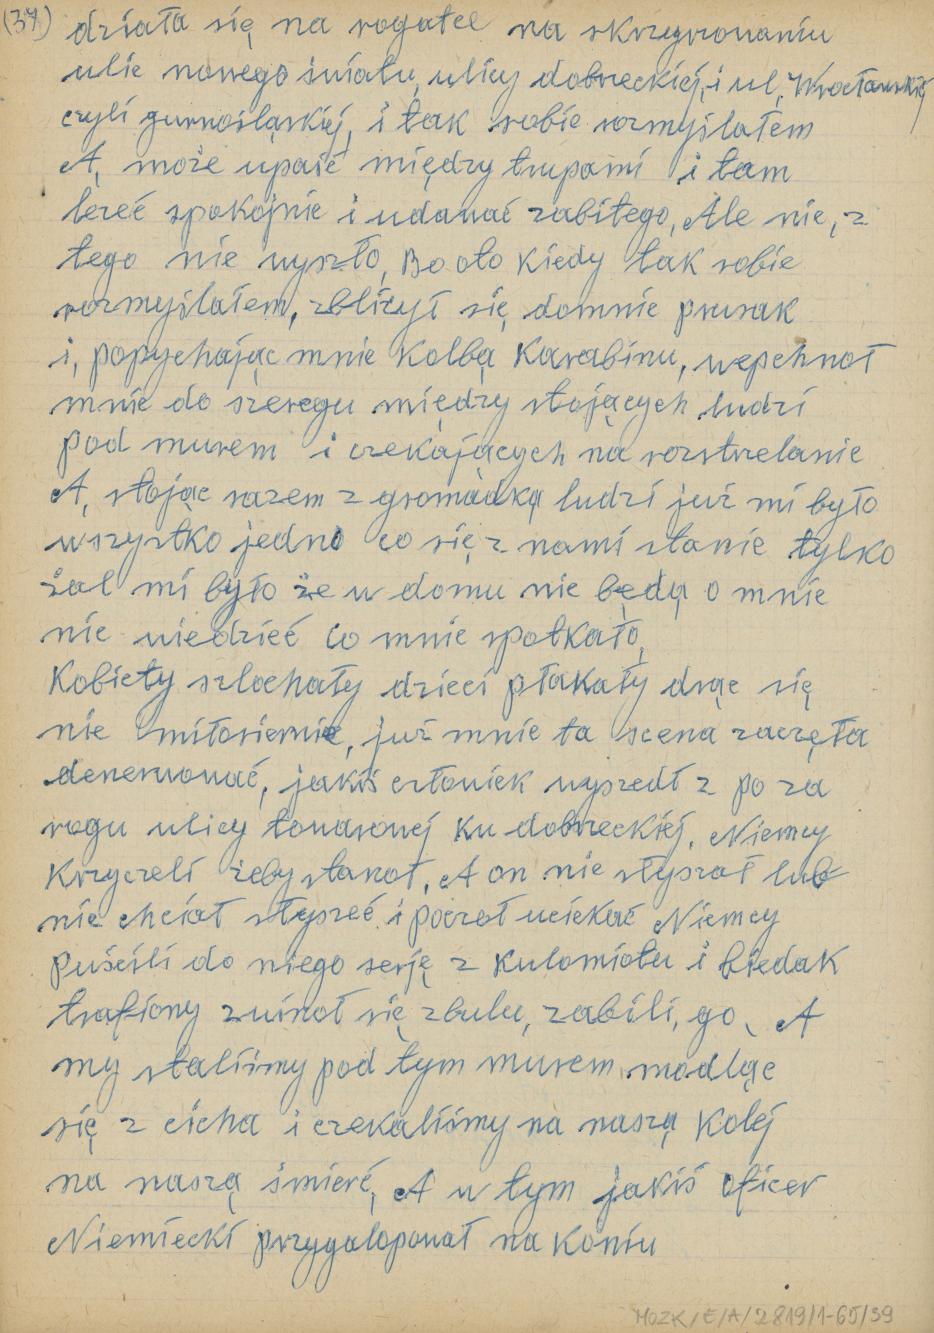 (37) działa się na rogatce na skrzyrzowaniu
ulic nowego światu, ulicy dobrzeckiej, i ul, Wrocławskiej
czyli gurnośląskiej, i tak sobie rozmyślałem
A, może upaść między trupami i tam
lerzeć spokojnie i udawać zabitego, Ale nie, z
tego nie wyszło, Bo oto kiedy tak sobie
rozmyślałem, zbliżył się domnie prusak
i, popychając mnie kolbą karabinu, wepchnoł
mnie do szeregu między stojących ludzi
pod murem i czekających na rozstrzelanie
A, stojąc razem z gromadką ludzi już mi było
wszystko jedno co się z nami stanie tylko
żal mi było że w domu nie będą o mnie
nic wiedzieć co mnie spotkało,
Kobiety szlochały dzieci płakały drąc się
nie miłosiernie, już mnie ta scena zaczęła
denerwować, jakiś człowiek wyszedł z po za
rogu ulicy towarowej ku dobrzeckiej, Niemcy
Krzyczeli żeby stanoł, A on nie słyszał lub
nie chciał słyszeć i poczoł uciekać Niemcy
puścili do niego serję z kulomiotu i biedak
trafiony zwinoł się zbulu, zabili, go, A
my staliśmy pod tym murem, modląc
się z cicha i czekaliśmy na naszą kolej
na naszą śmierć, A w tym jakiś oficer
Niemiecki przygalopował na koniu
MOZK/E/A/2819/1-65/39